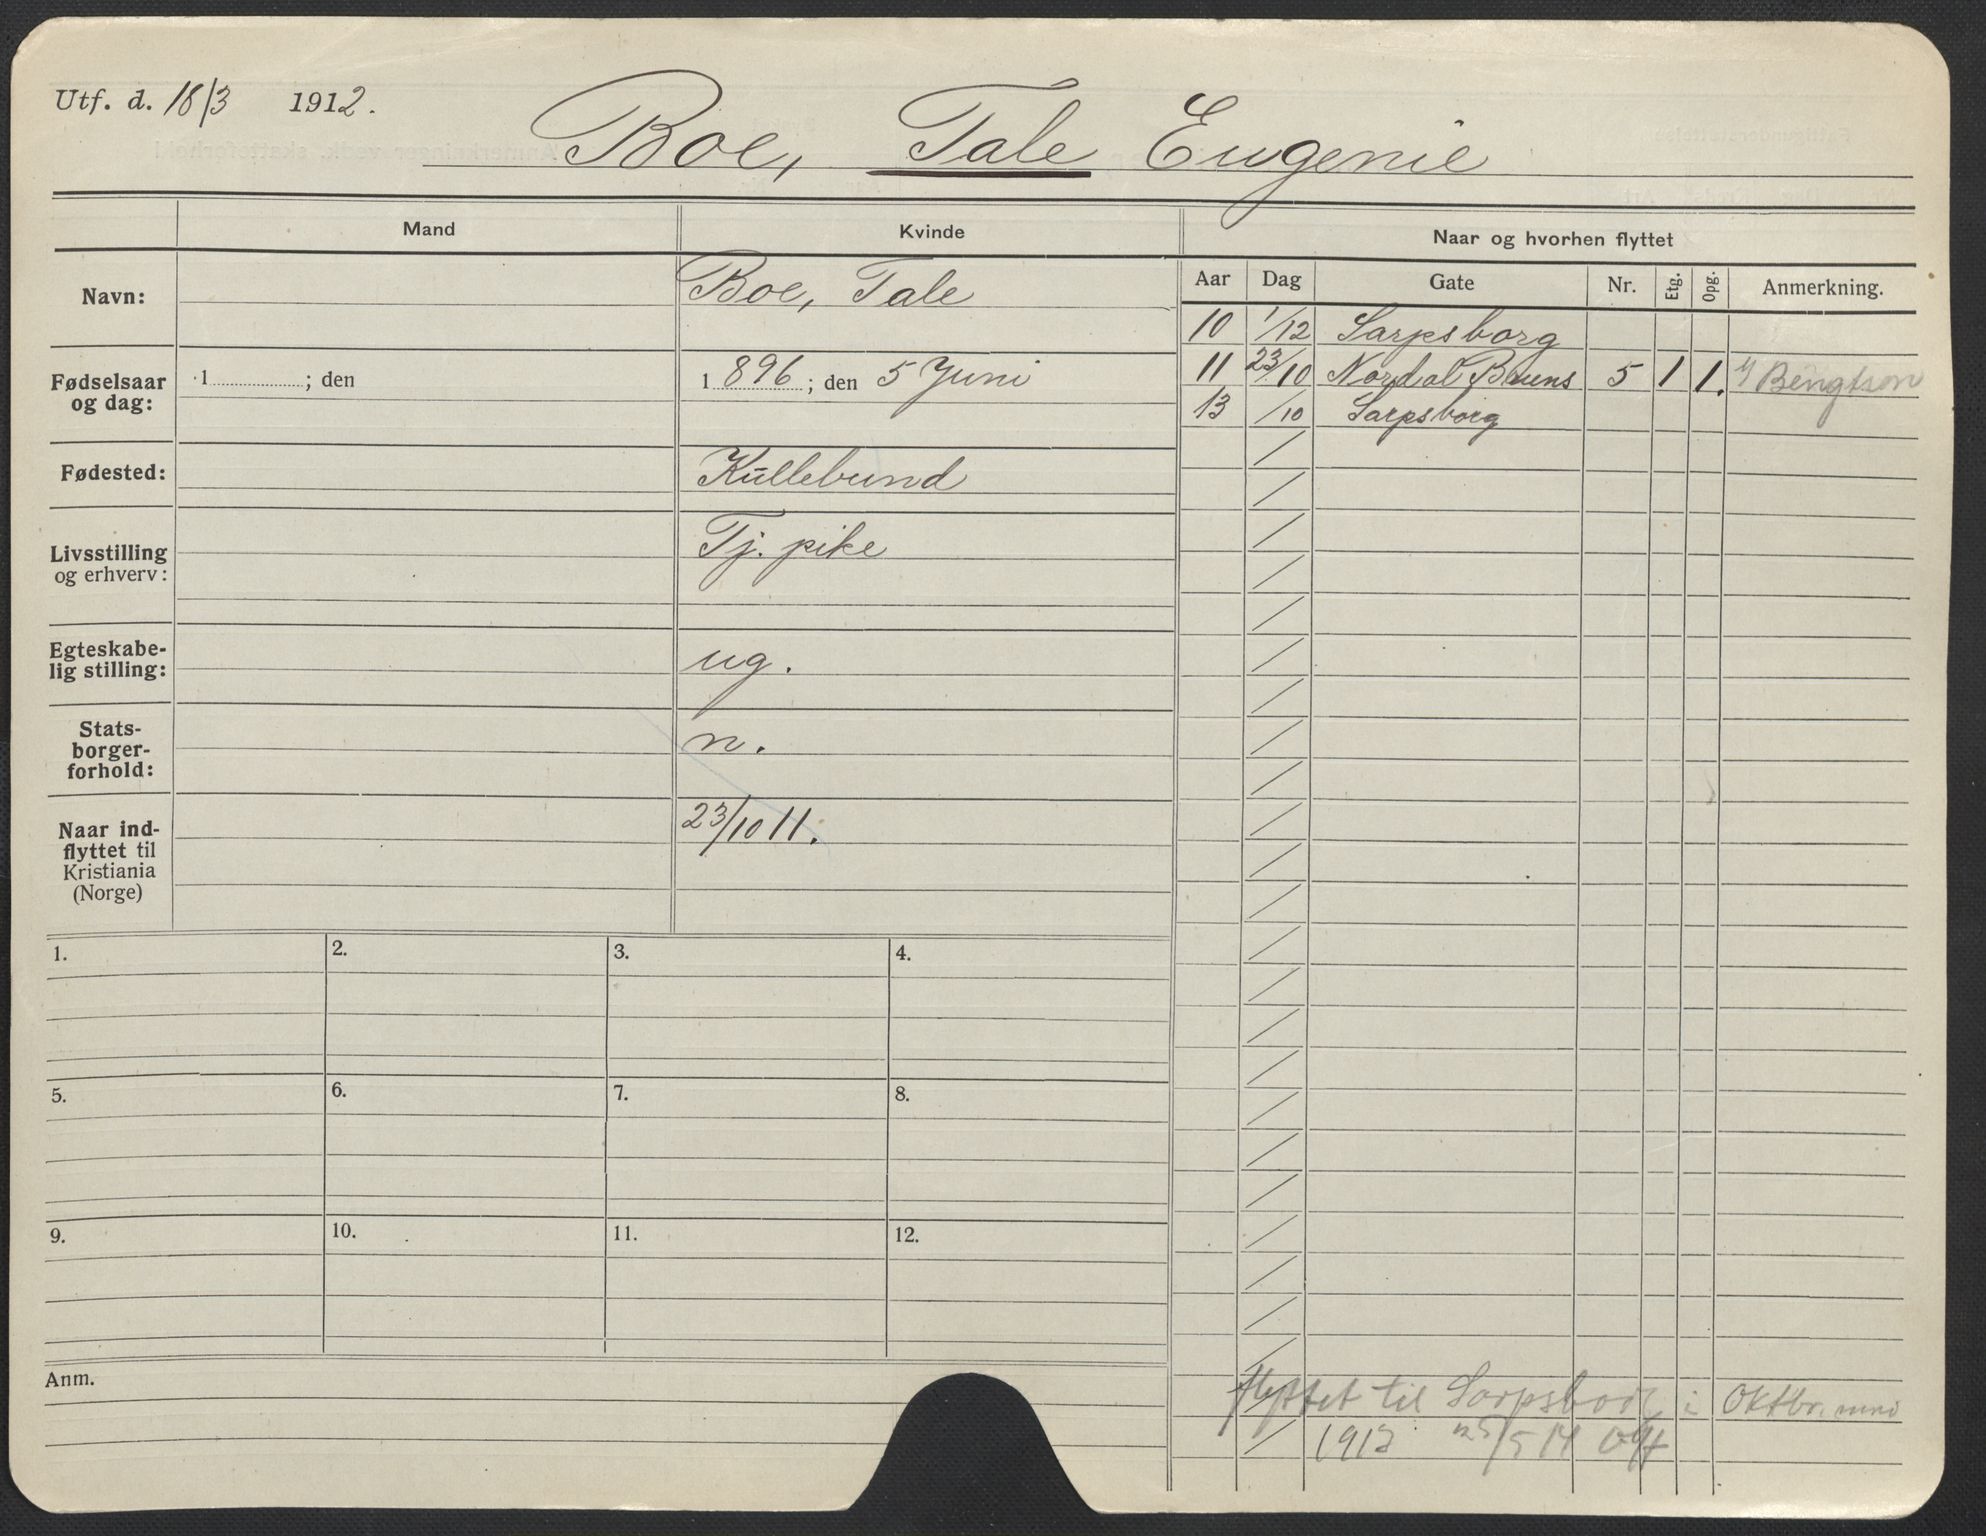 Utf. d. 18/3 1912.
Boe, Tale Eugenie
Mand
Kvinde
Naar og hvorhen flyttet
Aar Dag Gate Nr. Etg. Opg. Anmerkning.
10 1/12 Sarpsborg
11 23/10 Nordal Bruns 5 1 1. Bengtson
13 /10 Sarpsborg
Navn:
Boe, Tale
Fødselsaar
og dag:
1 ; den
1 896 ; den 5 Juni
Fødested:
Kullebund
Livsstilling
og erhverv:
Tj. pike
Egteskabe-
lig stilling:
ug.
Stats-
borger-
forhold:
n.
Naar ind-
flyttet til
Kristiania
(Norge)
23/10 11.
1. 2. 3. 4.
5. 6. 7. 8.
9. 10. 11. 12.
Anm.
flyttet til Sarpsborg i Oktbr.
/5 14